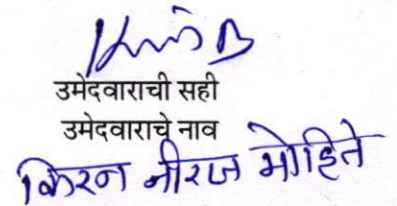 उमेदवाराची सही
उमेदवाराचे नाव
किरन नीरज मोहिते